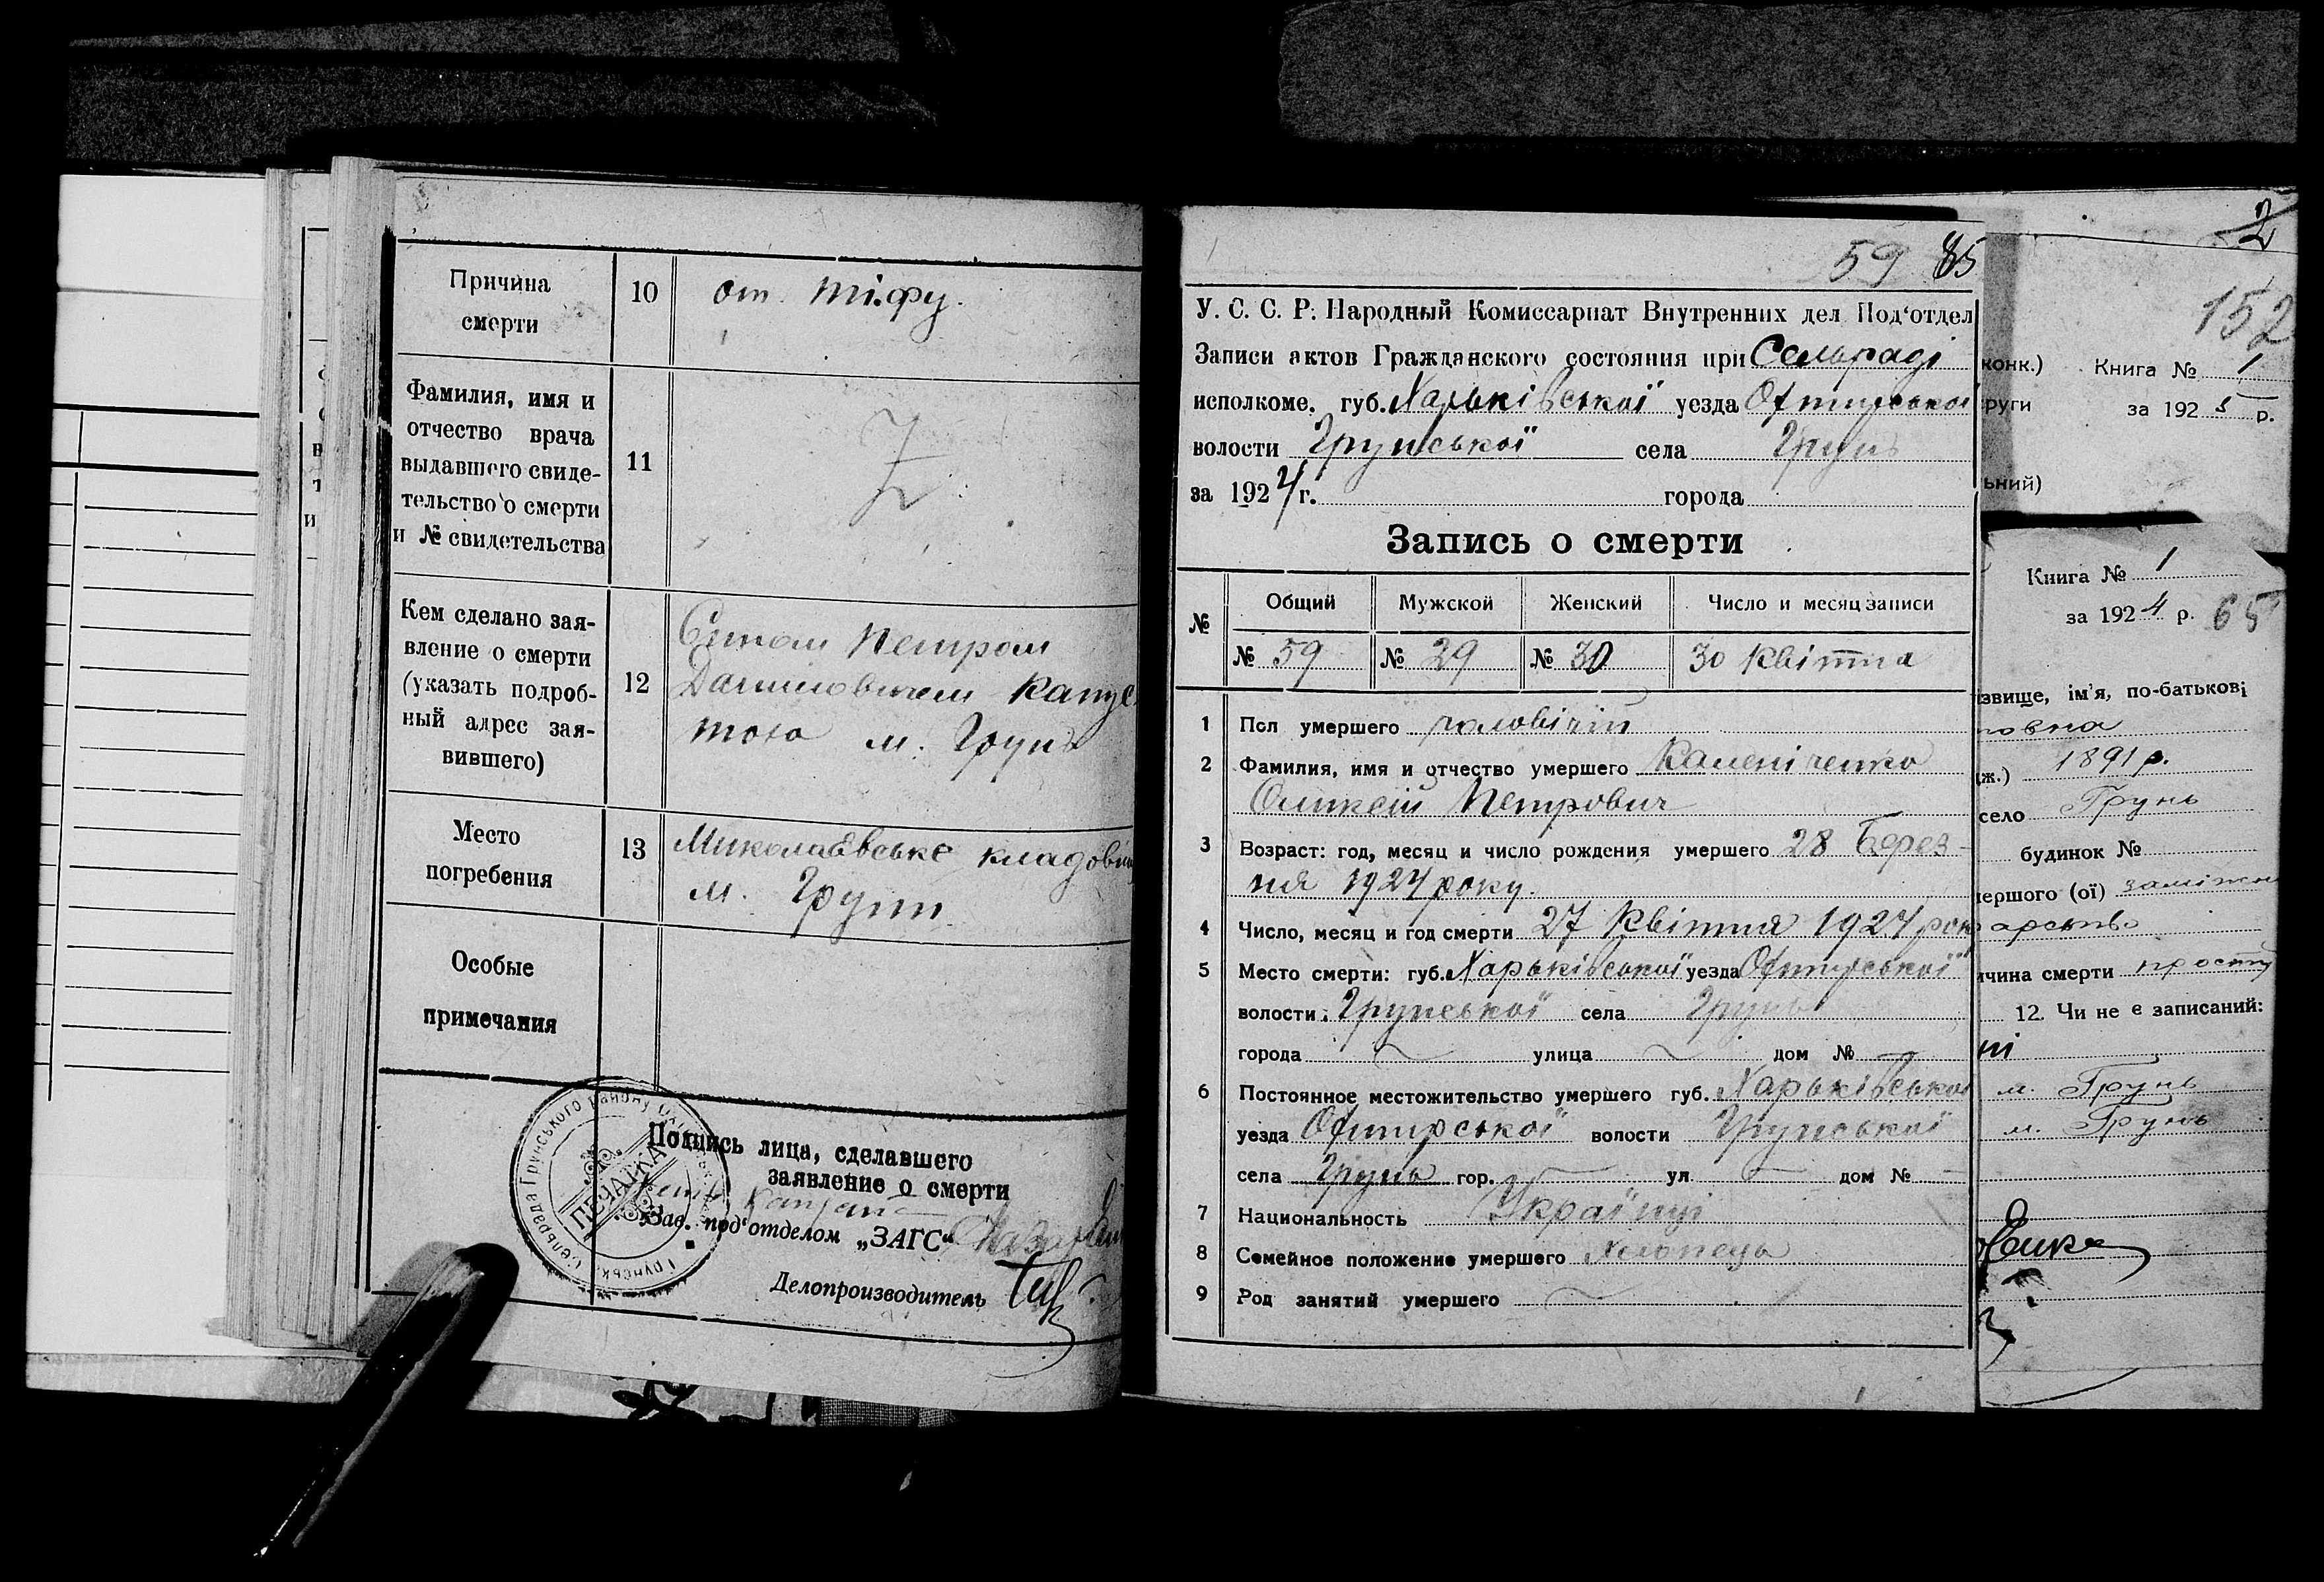 Причина
смерти
10
от тіфу.
Фамилия, имя и
отчество врача
выдавшего свиде-
тельство о смерти
и № свидетельства
11
Кем сделано зая-
вление о смерти
(указать подроб-
ный адрес зая-
вившего)
12
Петром
Даниловичем Капус
тою м. Грунь
Место
погребения
13
Миколаївське кладовищ
м. Груні
Особые
примечания
Подпись лица, сделавшего
заявление о смерти
Капуста
Зав. под'отделом „ЗАГС“
Делопроизводитель
ПЕЧАТКА
Сельрада Грунського району
59 85
У. С. С. Р. Народный Комиссариат Внутренних дел Под'отдел
Записи актов Гражданского состояния при Сельраді
исполкоме. губ. Харьківської уезда Охтирської
волости Грунської села Грунь
за 1924 г. города
Запись о смерти
№ Общий Мужской Женский Число и месяц записи
№ 59 № 29 № 30 30 Квітня
1 Пол умершего чоловічій
2 Фамилия, имя и отчество умершего Каменіченко
Олексій Петрович
3 Возраст: год, месяц и число рождения умершего 28 Берез-
ня 1924 року.
4 Число, месяц и год смерти 27 Квітня 1924 рок
5 Место смерти: губ. Харьківської уезда Охтирської
волости Грунської села Грунь
города улица дом №
6 Постоянное местожительство умершего губ. Харьківської
уезда Охтирської волости Грунської
села Грунь гор. ул. дом №
7 Национальность Українці
8 Семейное положение умершего Хлопець
9 Род занятий умершего
2
152
конк.) Книга № 1
руги за 1925 р.
ьний)
Книга № 1
за 1924 р. 65
ізвище, ім'я, по-батькові
овна
ж.) 1891 р.
село Грунь
будинок №
мершого (ої) заміжн
арств
ичина смерти простуд
12. Чи не є записаний:
м. Грунь
м. Грунь